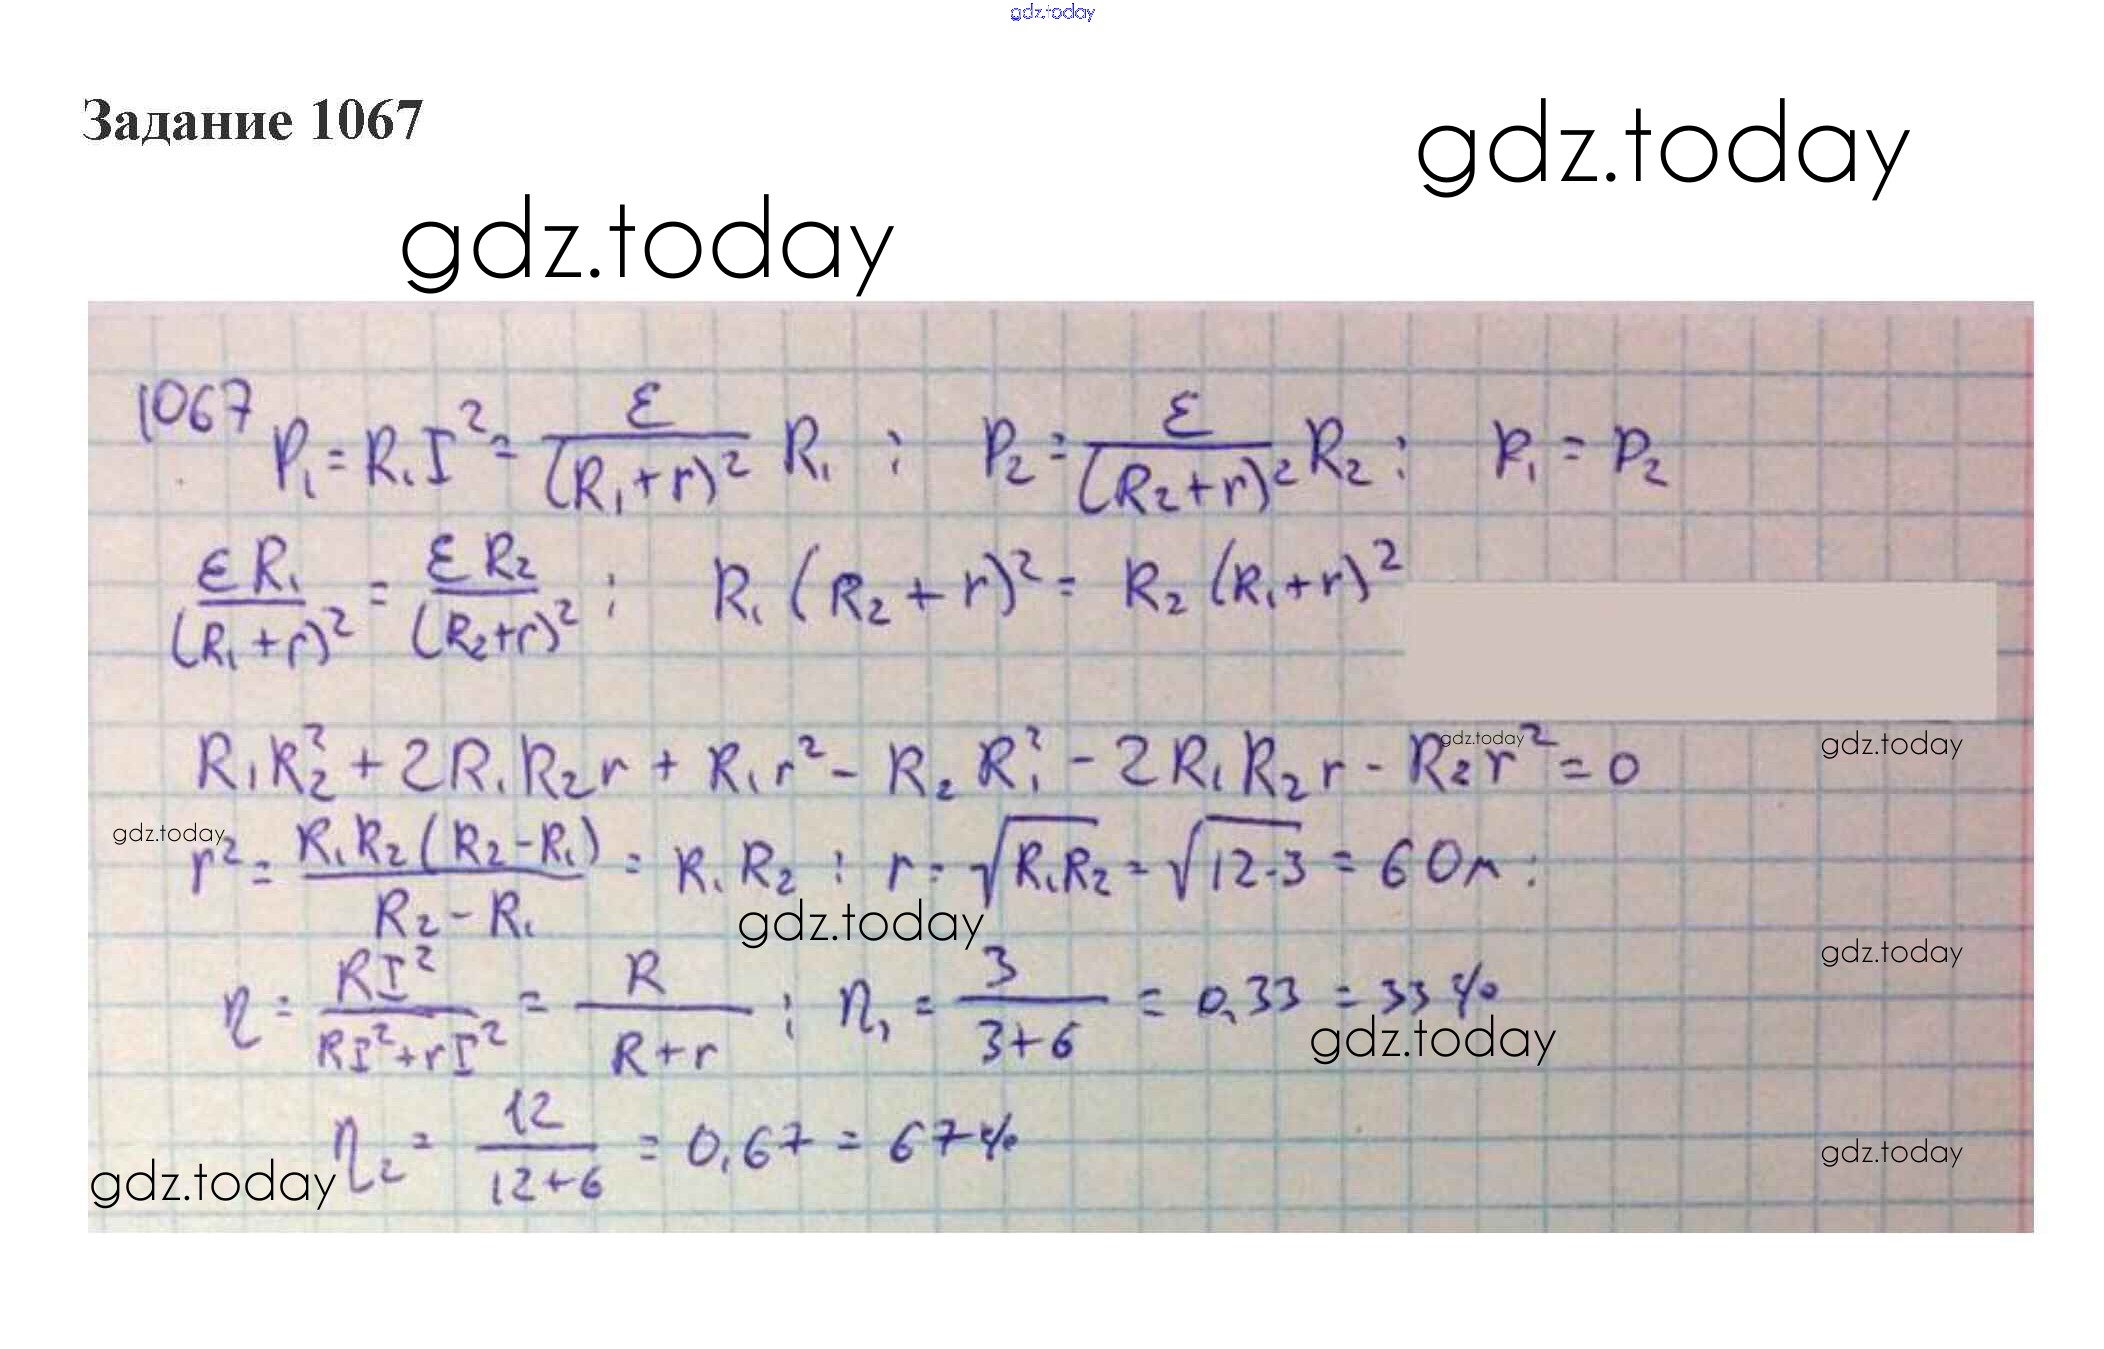 gdz.today
Задание 1067
gdz.today
gdz.today
1067 P₁ = R₁I² = ε/(R₁+r)² R₁ ; P₂ = ε/(R₂+r)² R₂ ; P₁ = P₂
εR₁/(R₁+r)² = εR₂/(R₂+r)² ; R₁(R₂+r)² = R₂(R₁+r)²
gdz.today
gdz.today
R₁R₂² + 2R₁R₂r + R₁r² - R₂R₁² - 2R₁R₂r - R₂r² = 0
gdz.today
r² = R₁R₂(R₂-R₁)/R₂-R₁ = R₁R₂ ; r = √R₁R₂ = √12·3 = 6 Ом ;
gdz.today
gdz.today
η = RI²/RI²+rI² = R/R+r ; η₁ = 3/3+6 = 0,33 = 33%
gdz.today
η₂ = 12/12+6 = 0,67 = 67%
gdz.today
gdz.today